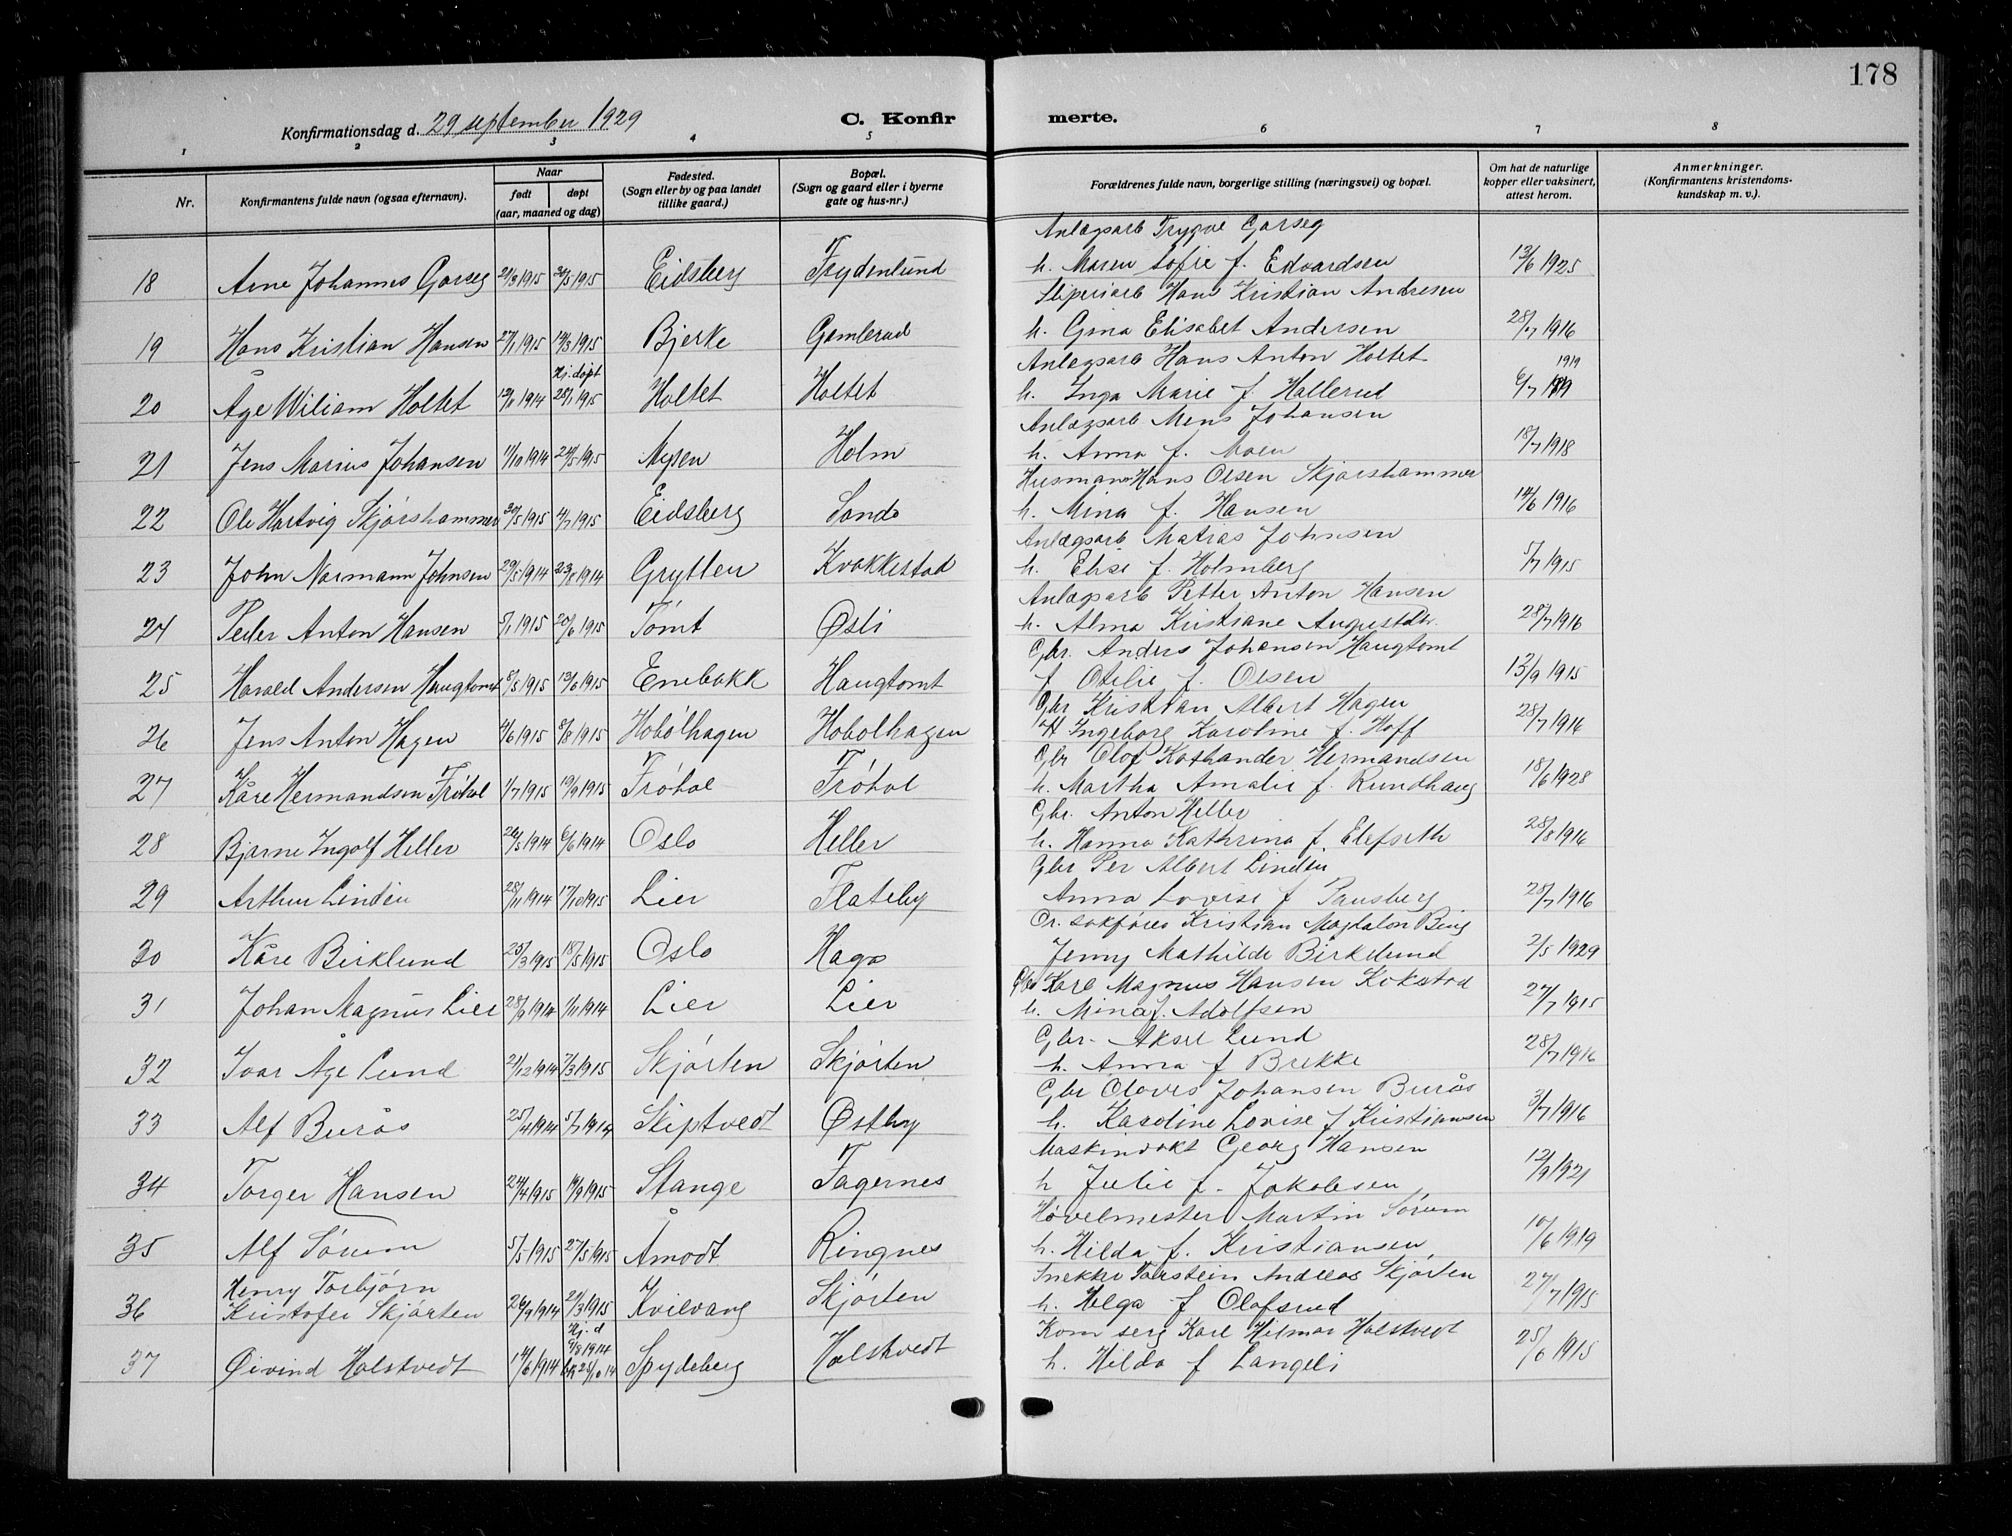 178
Konfirmationsdag d. 29 september 1929
C. Konfirmerte.
1 2 3 4 5 6 7 8
Nr.
Konfirmantens fulde navn (ogsaa efternavn).
Naar
født døpt
(aar, maaned og dag)
Fødested.
(Sogn eller by og paa landet
tillike gaard.)
Bopæl.
(Sogn og gaard eller i byerne
gate og hus-nr.)
Forældrenes fulde navn, borgerlige stilling (næringsvei) og bopæl.
Om hat de naturlige
kopper eller vaksinert,
attest herom.
Anmerkninger.
(Konfirmantens kristendoms-
kundskap m. v.).
Anlægsarb Trygve Garseg
18 Arne Johannes Garseg 21/3 1915 30/5 1915 Eidsberg Frydenlund h. Maren Sofie f. Edvardsen 13/6 1925
Sliperiarb Hans Kristian Andresen
19 Hans Kristian Hansen 27/1 1915 14/3 1915 Bjerke Gamlerud h. Gina Elisabet Andersen 28/7 1916
Anlægsarb Hans Anton Holtet
Hj. døpt 1919
20 Åge Wiliam Holtet 13/11 1914 28/1 1915 Holtet Holtet h. Inga Marie f. Hallerud 6/7 1919
Anlægsarb Mens Johansen
21 Jens Marius Johansen 11/10 1914 24/5 1915 Mysen Holm h. Anna f. Moen 18/7 1918
Husmann Hans Olsen Skjørshammer
22 Ole Hartvig Skjørshammer 30/5 1915 4/7 1915 Eidsberg Sando h. Mina f. Hansen 14/6 1916
Anlægsarb Matias Johnsen
23 John Normann Johnsen 29/5 1914 23/8 1914 Grytten Knokkestad h. Elise f. Holmberg 5/7 1915
Anlægsarb Petter Anton Hansen
24 Peder Anton Hansen 5/1 1915 20/6 1915 Tømt Østi h. Alma Kristiane Augustdtr. 28/7 1916
Gbr. Anders Johansen Haugtomt
25 Harald Andersen Haugtomt 8/5 1915 13/6 1915 Enebakk Haugtomt f Otilie f. Olsen 13/9 1915
Gbr Kristian Albert Hagen
26 Jens Anton Hagen 4/6 1915 8/8 1915 Hobølhagen Hobolhagen H Ingeborg Karoline f. Hoff 28/7 1916
Gbr Olof Kathander Hermandsen
27 Kåre Hermandsen Frøhol 1/7 1915 19/9 1915 Frøhol Frøhol h. Martha Amalie f. Rundhaug 18/6 1928
Gbr. Anton Heller
28 Bjarne Ingolf Heller 26/5 1914 6/6 1914 Oslo Heller h. Hanna Kathrina f. Elefseth 28/8 1916
Gbr Per Albert Linden
29 Arthur Linden 28/11 1914 17/10 1915 Lier Flateby Anna Lovise f Pausberg 28/7 1916
Or. sakfører Kristian Magdalon Bing
30 Kåre Birklund 25/3 1915 18/5 1915 Oslo Haga Jenny Mathilde Birkelund 2/5 1929
Gbr Karl Magnus Hansen Kokstad
31 Johan Magnus Lier 28/9 1914 1/11 1914 Lier Lier h. Mina f. Adolfsen 27/7 1915
Gbr. Aksel Lund
32 Ivar Åge Lund 21/12 1914 7/3 1915 Skjørten Skjørten h. Anna f Brekke 28/7 1916
Gbr Olaves Johansen Burås
33 Alf Burås 25/4 1914 5/7 1914 Skiptvedt Østby h. Karoline Lovise f Kristiansen 3/7 1916
Maskinvakt Georg Hansen
34 Torger Hansen 24/4 1915 19/9 1915 Stange Fagernes h Julie f. Jakobsen 12/9 1921
Høvelmester Martin Sørum
35 Alf Sørum 5/5 1915 27/5 1915 Åmodt Ringnes h. Hilda f. Kristiansen 10/6 1919
Henry Torbjørn Snekker Torstein Andreas Skjørten
36 Kristofer Skjørten 26/9 1914 21/3 1915 Kvilvang Skjørten h. Helga f Olafsrud 27/7 1915
Hj. d Kom serg Karl Hilmar Halstvedt
37 Øivind Halstvedt 14/6 1914 9/8 1914 Spydeberg Halstvedt h. Hilda f Langeli 25/6 1915
25/10 14